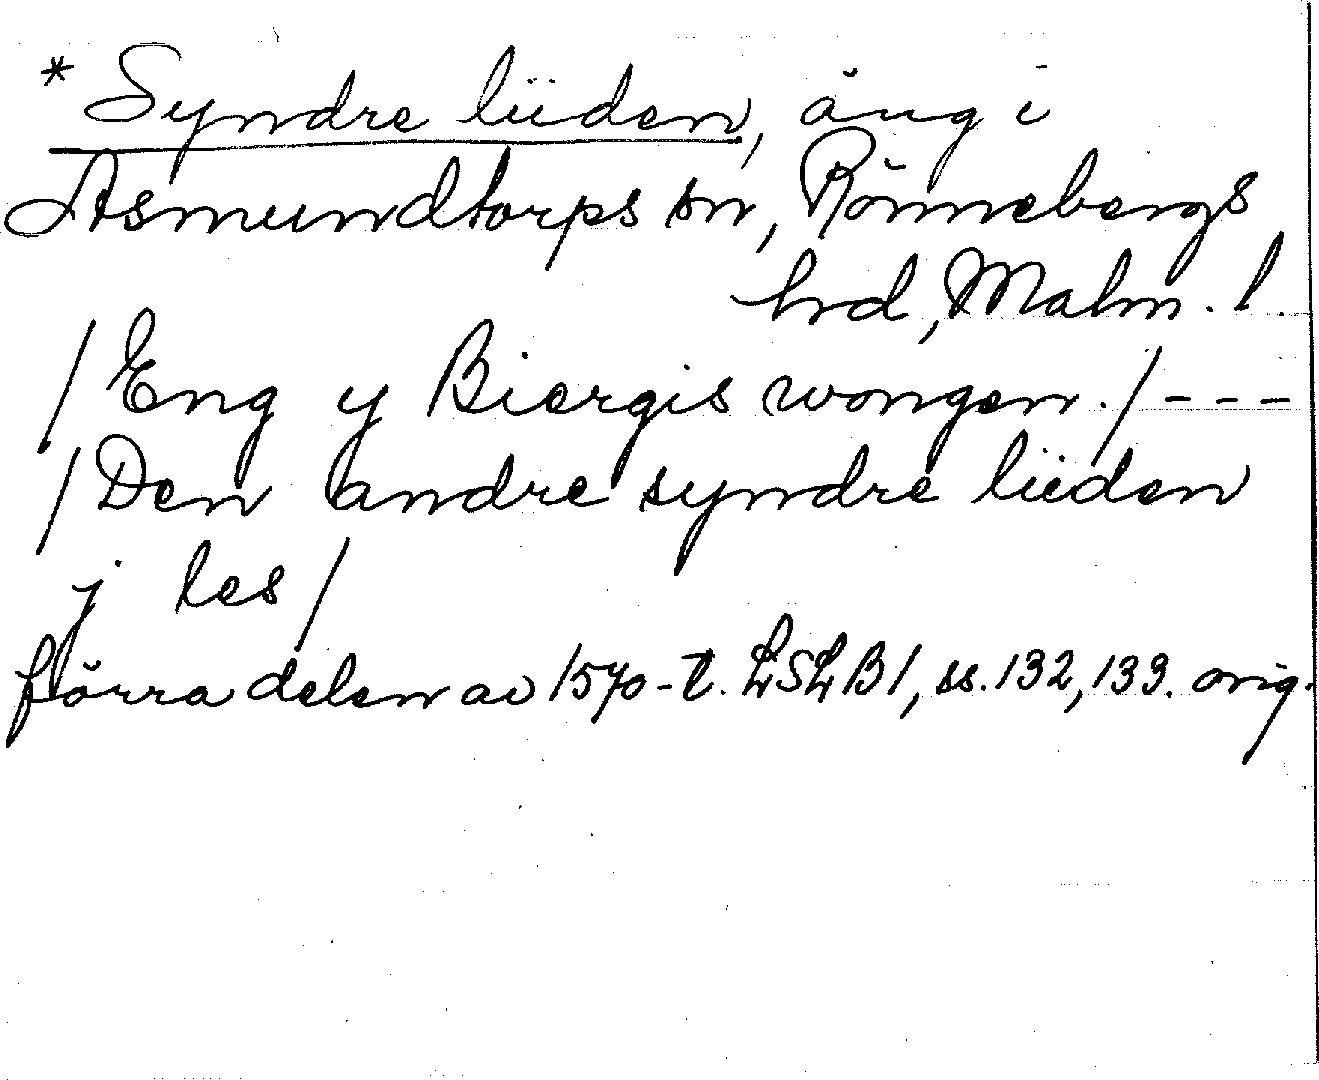 * Syndre lüden, äng i
Asmundtorps sn, Rönnebergs
hrd, Malm. l.
/Eng y Biergis wongen./---
/Den andre syndre lüeden
j les/
förra delen av 1570-t. LSLB1, ss. 132, 133. orig.